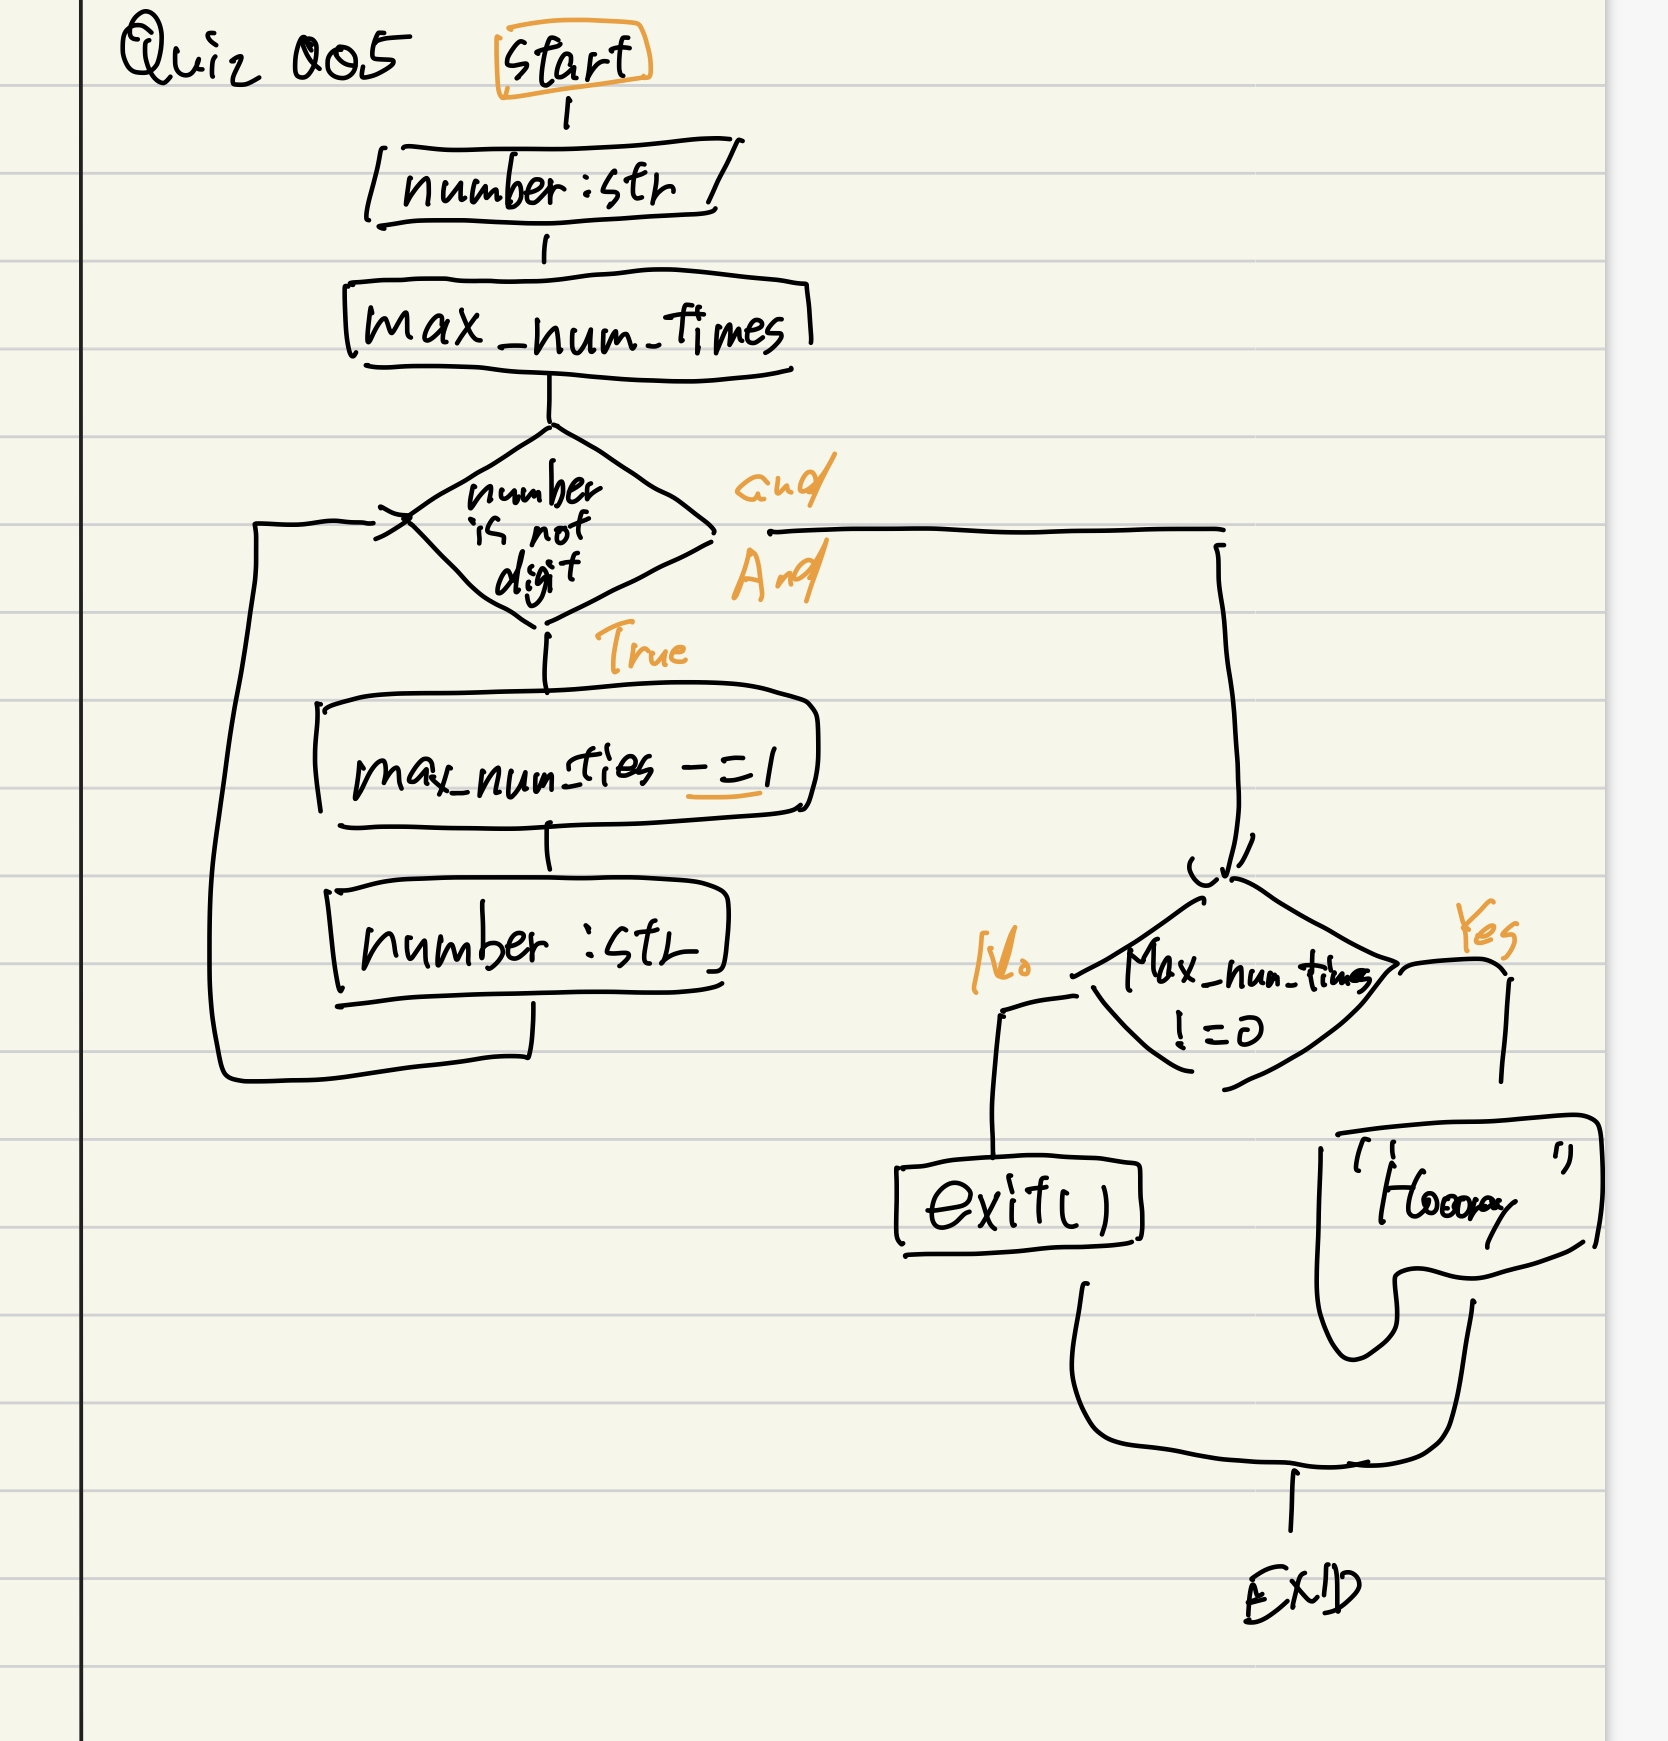 Quiz 005 start
number : str
max_num_times
number
is not
digit
and
And
True
max_num_ties -= 1
number : str
No
Max_num_times
!= 0
Yes
exit()
"Hooray"